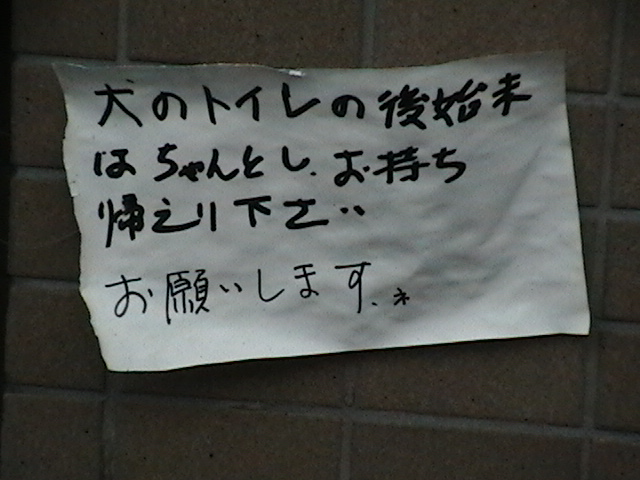 犬のトイレの後始末
はちゃんとし、お持ち
帰えり下さい
お願いします。ネ